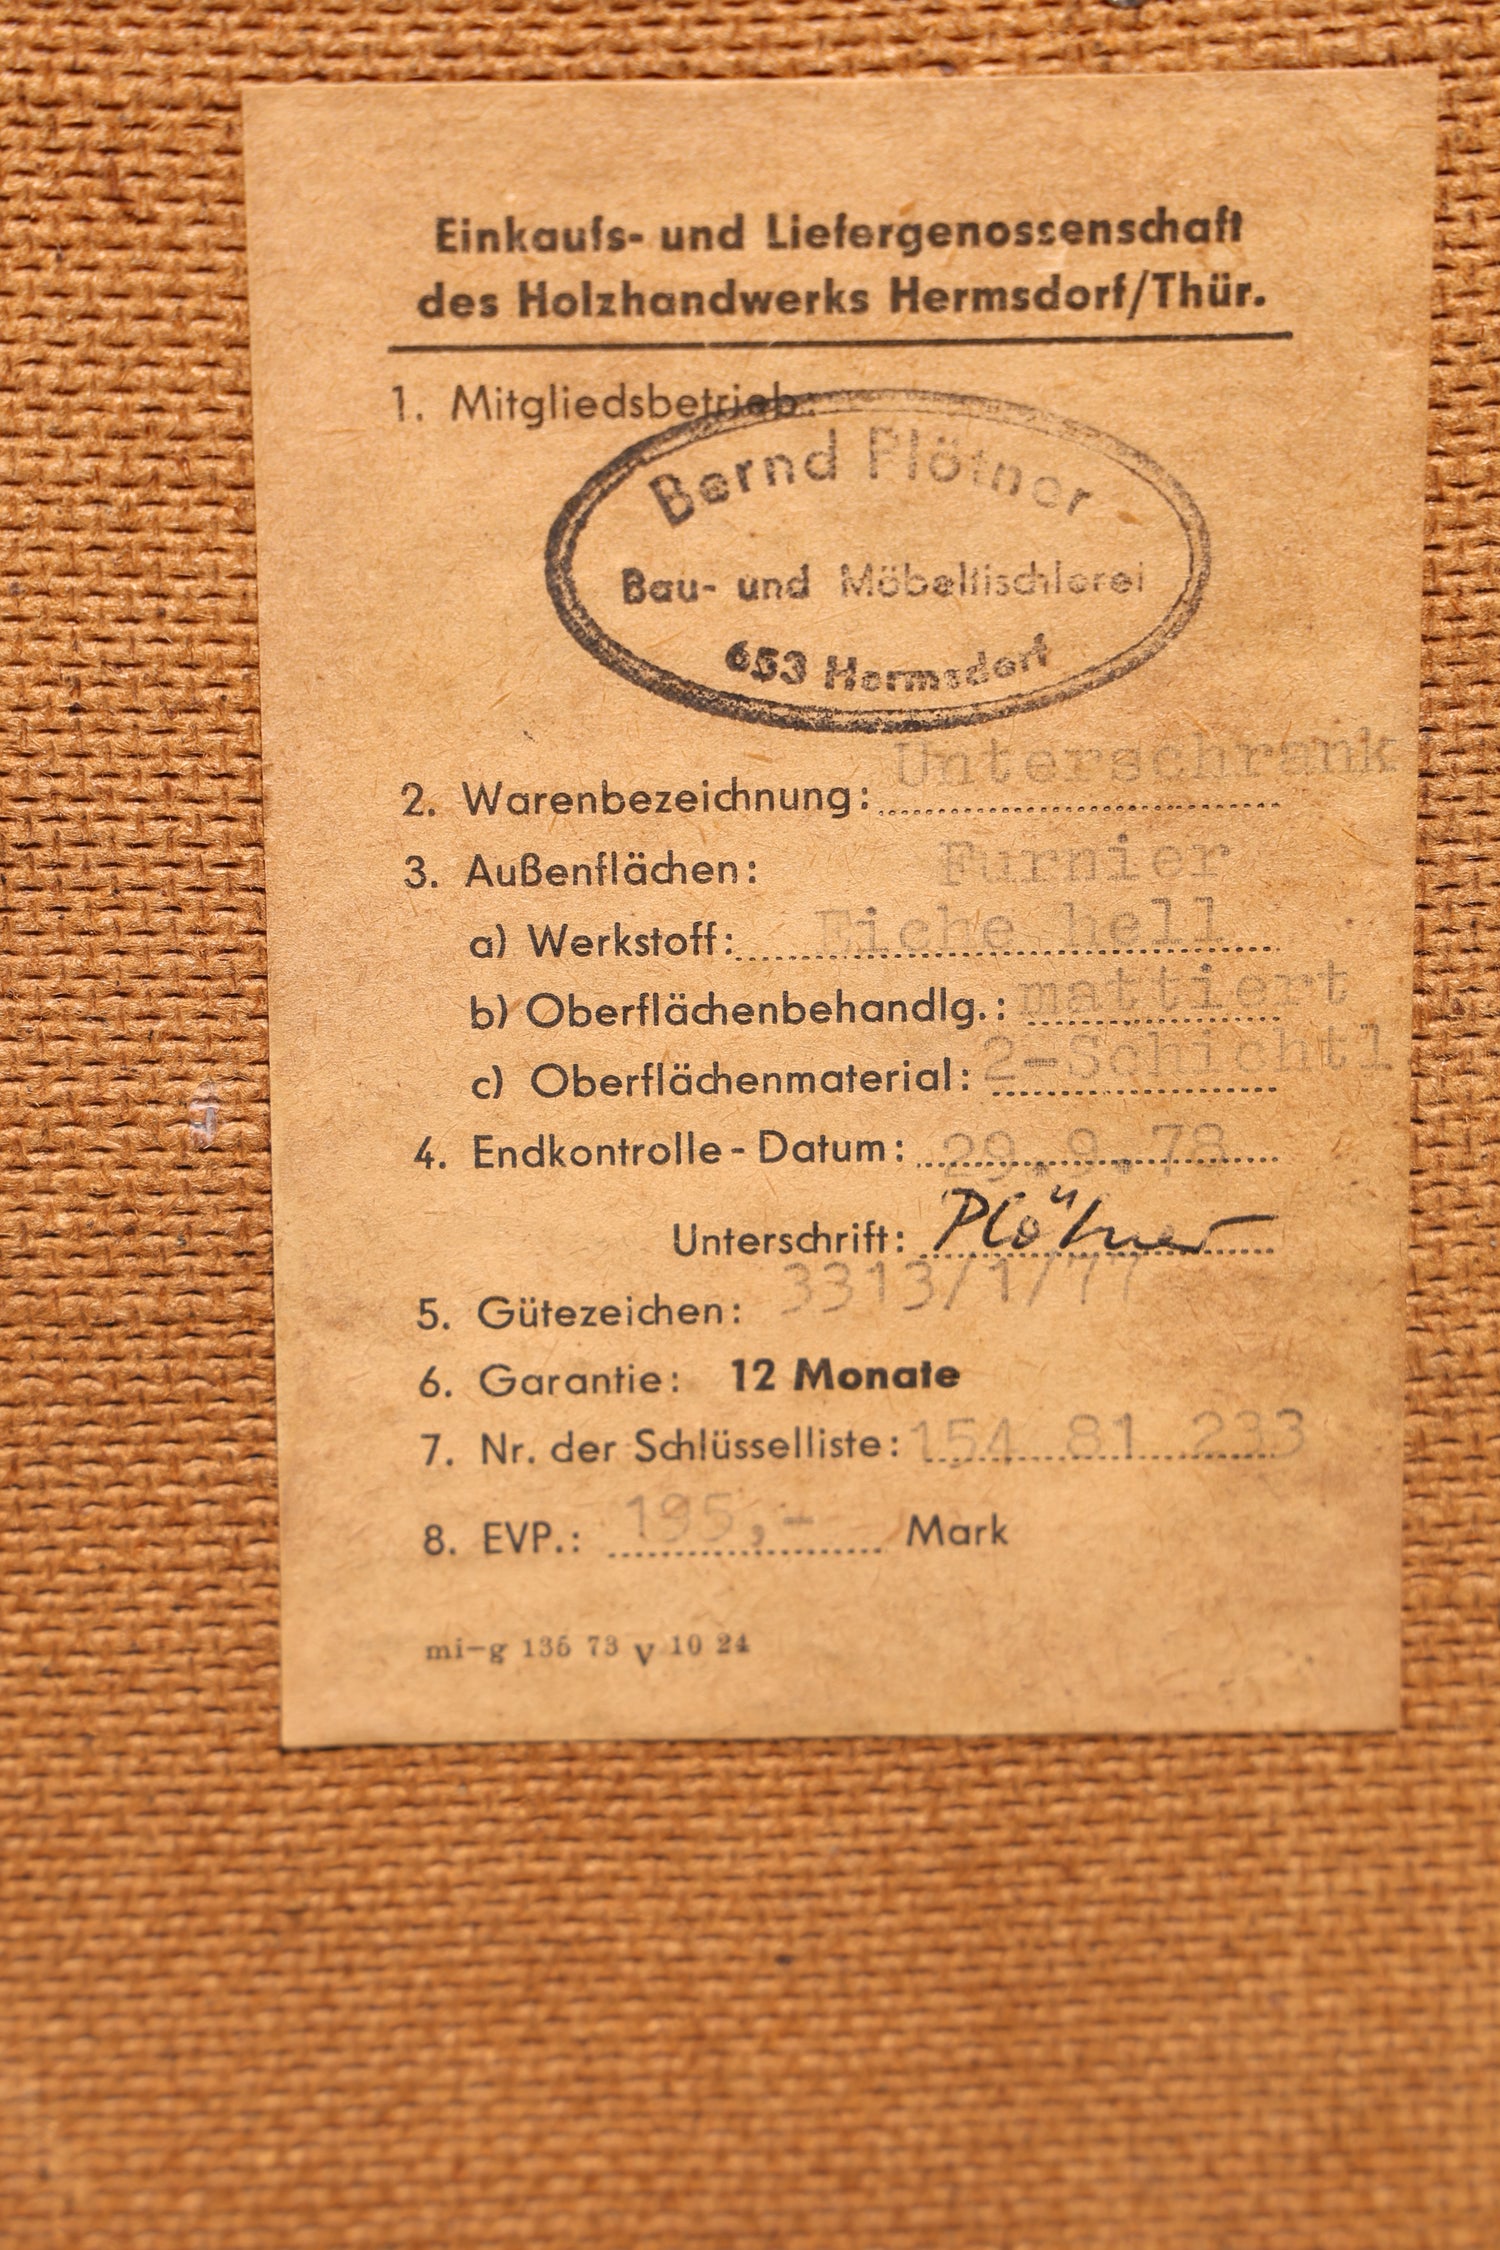 Einkaufs- und Liefergenossenschaft
des Holzhandwerks Hermsdorf/Thür.
1. Mitgliedsbetrieb:
Bernd Plötner
Bau- und Möbeltischlerei
653 Hermsdorf
Unterschrank
2. Warenbezeichnung:
3. Außenflächen: Furnier
a) Werkstoff: Eiche hell
b) Oberflächenbehandlg.: mattiert
c) Oberflächenmaterial: 2-Schichtl
4. Endkontrolle - Datum: 29.9.78
Unterschrift: Plötner
5. Gütezeichen: 3313/1/77
6. Garantie: 12 Monate
7. Nr. der Schlüsselliste: 154 81 233
8. EVP.: 195,- Mark
mi-g 136 73 V 10 24